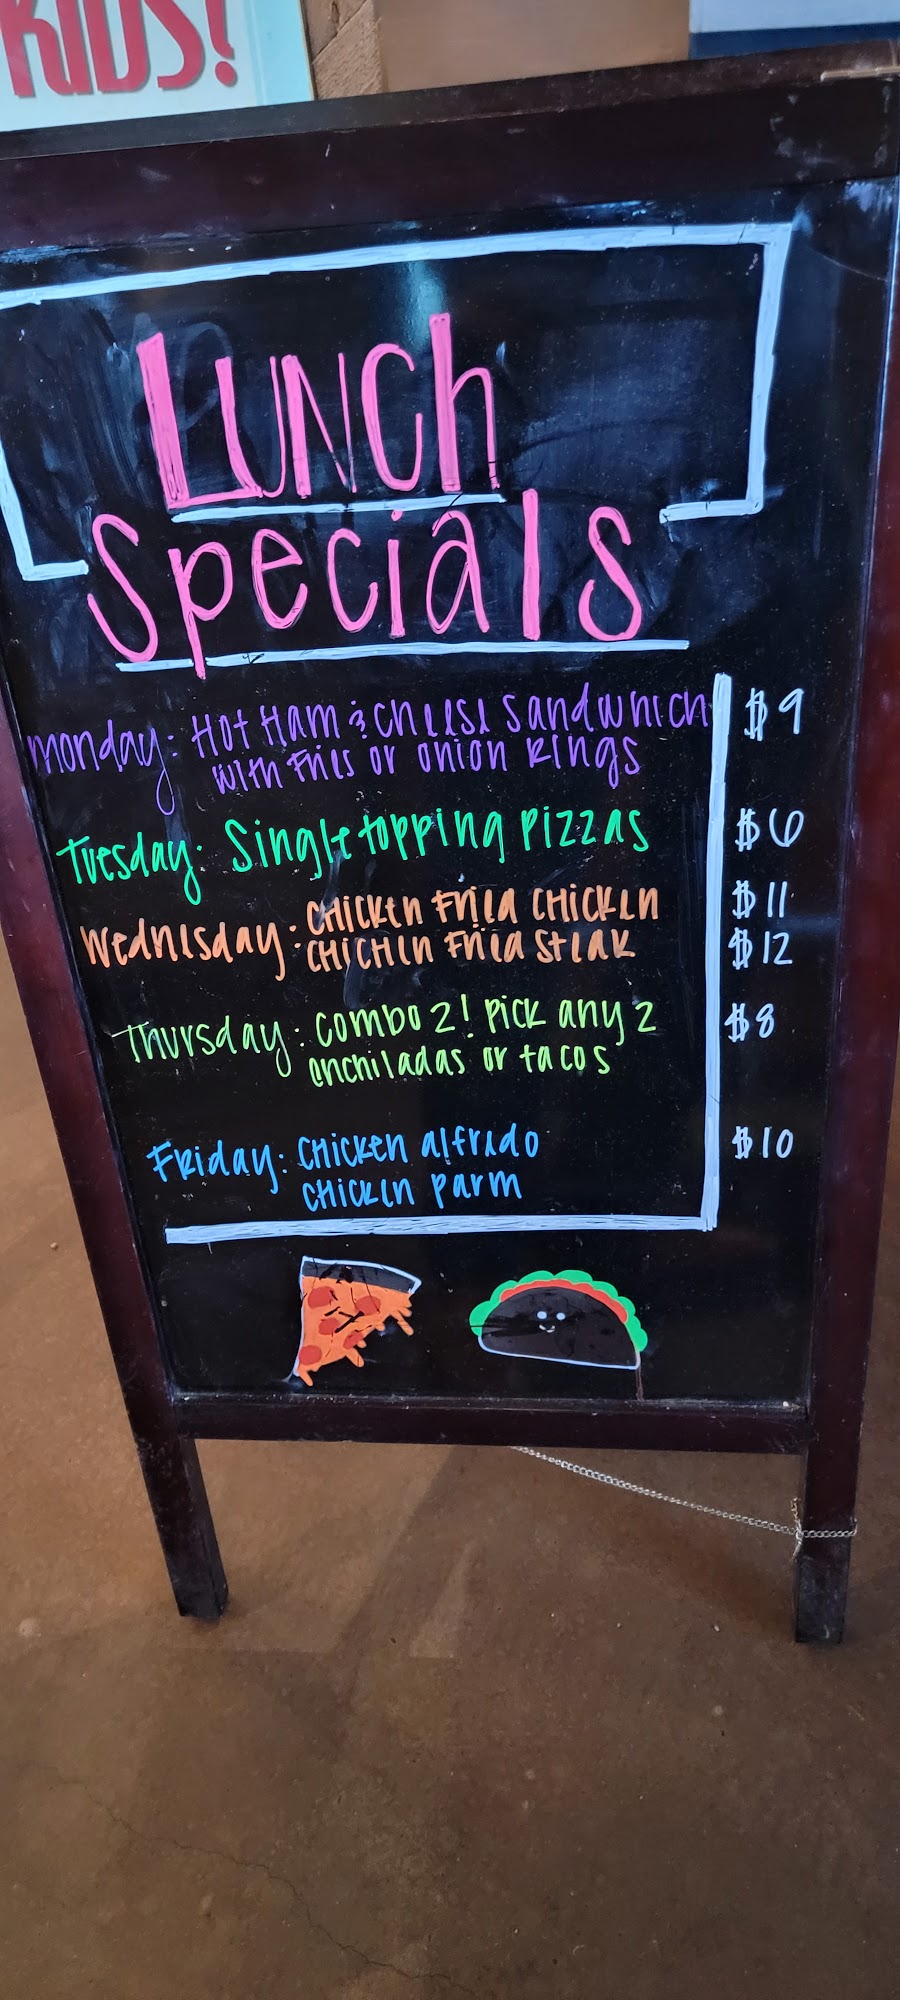 KIDS!
Lunch
Specials
monday: Hot Ham & Cheese Sandwhich $9
with Fries or onion Rings
Tuesday: Single topping Pizzas $6
Wednesday: Chicken Fried Chicken $11
Chichen Fried Steak $12
Thursday: Combo 2! Pick any 2 $8
enchiladas or tacos
Friday: Chicken alfredo $10
Chicken Parm